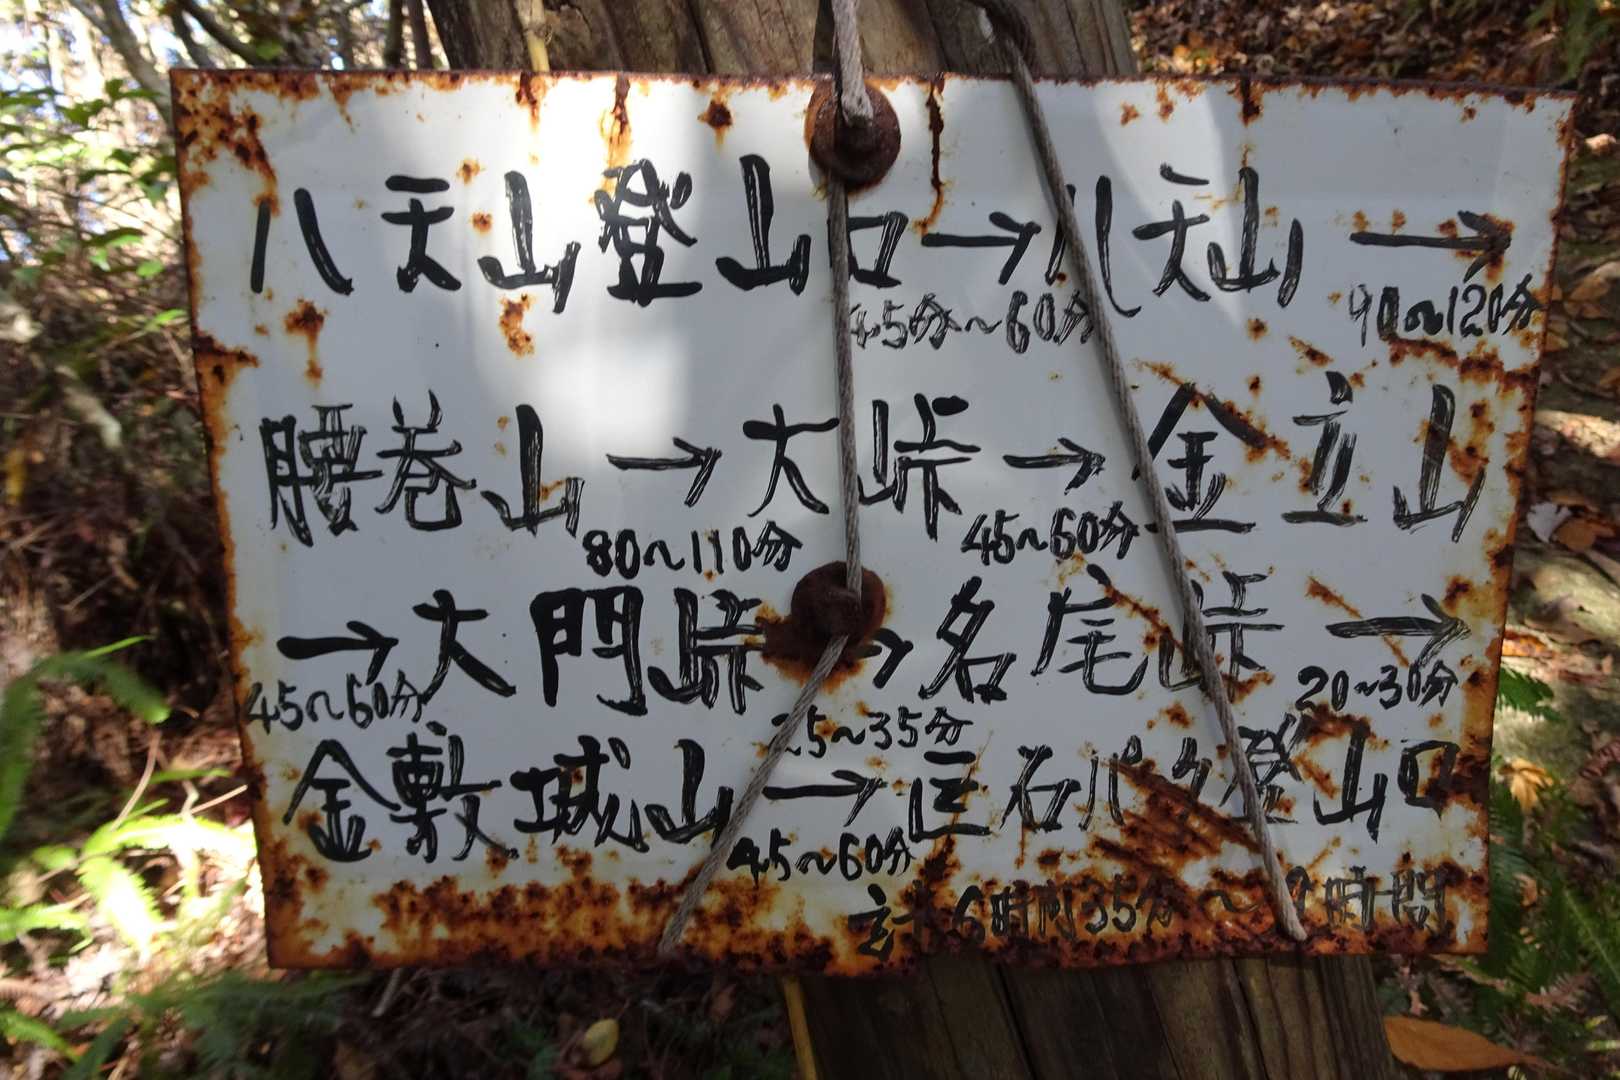 八天山登山口→八天山→
45分~60分 90~120分
腰巻山→大峠→金立山
80~110分 45~60分
→大門峠→名尾峠→
45~60分 25~35分 20~30分
金敷城山→巨石パーク登山口
45~60分
計 6時間35分~9時間